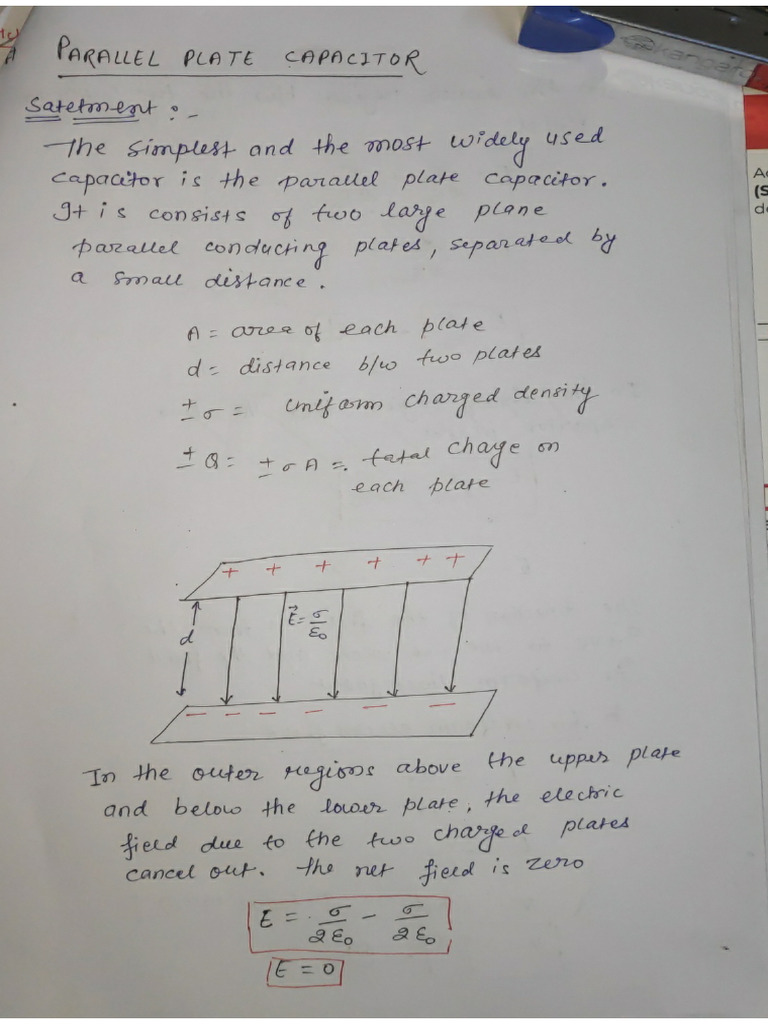 PARALLEL PLATE CAPACITOR
Satetment :-
The simplest and the most widely used
capacitor is the parallel plate capacitor.
It is consists of two large plane
parallel conducting plates, separated by
a small distance.
A = area of each plate
d = distance b/w two plates
± σ = uniform charged density
± Q = ± σ A = total charge on
each plate
+ + + + + +
d
E⃗ = σ/ε₀
− − − − − −
In the outer regions above the upper plate
and below the lower plate, the electric
field due to the two charged plates
cancel out. the net field is zero
E = σ/2ε₀ − σ/2ε₀
E = 0